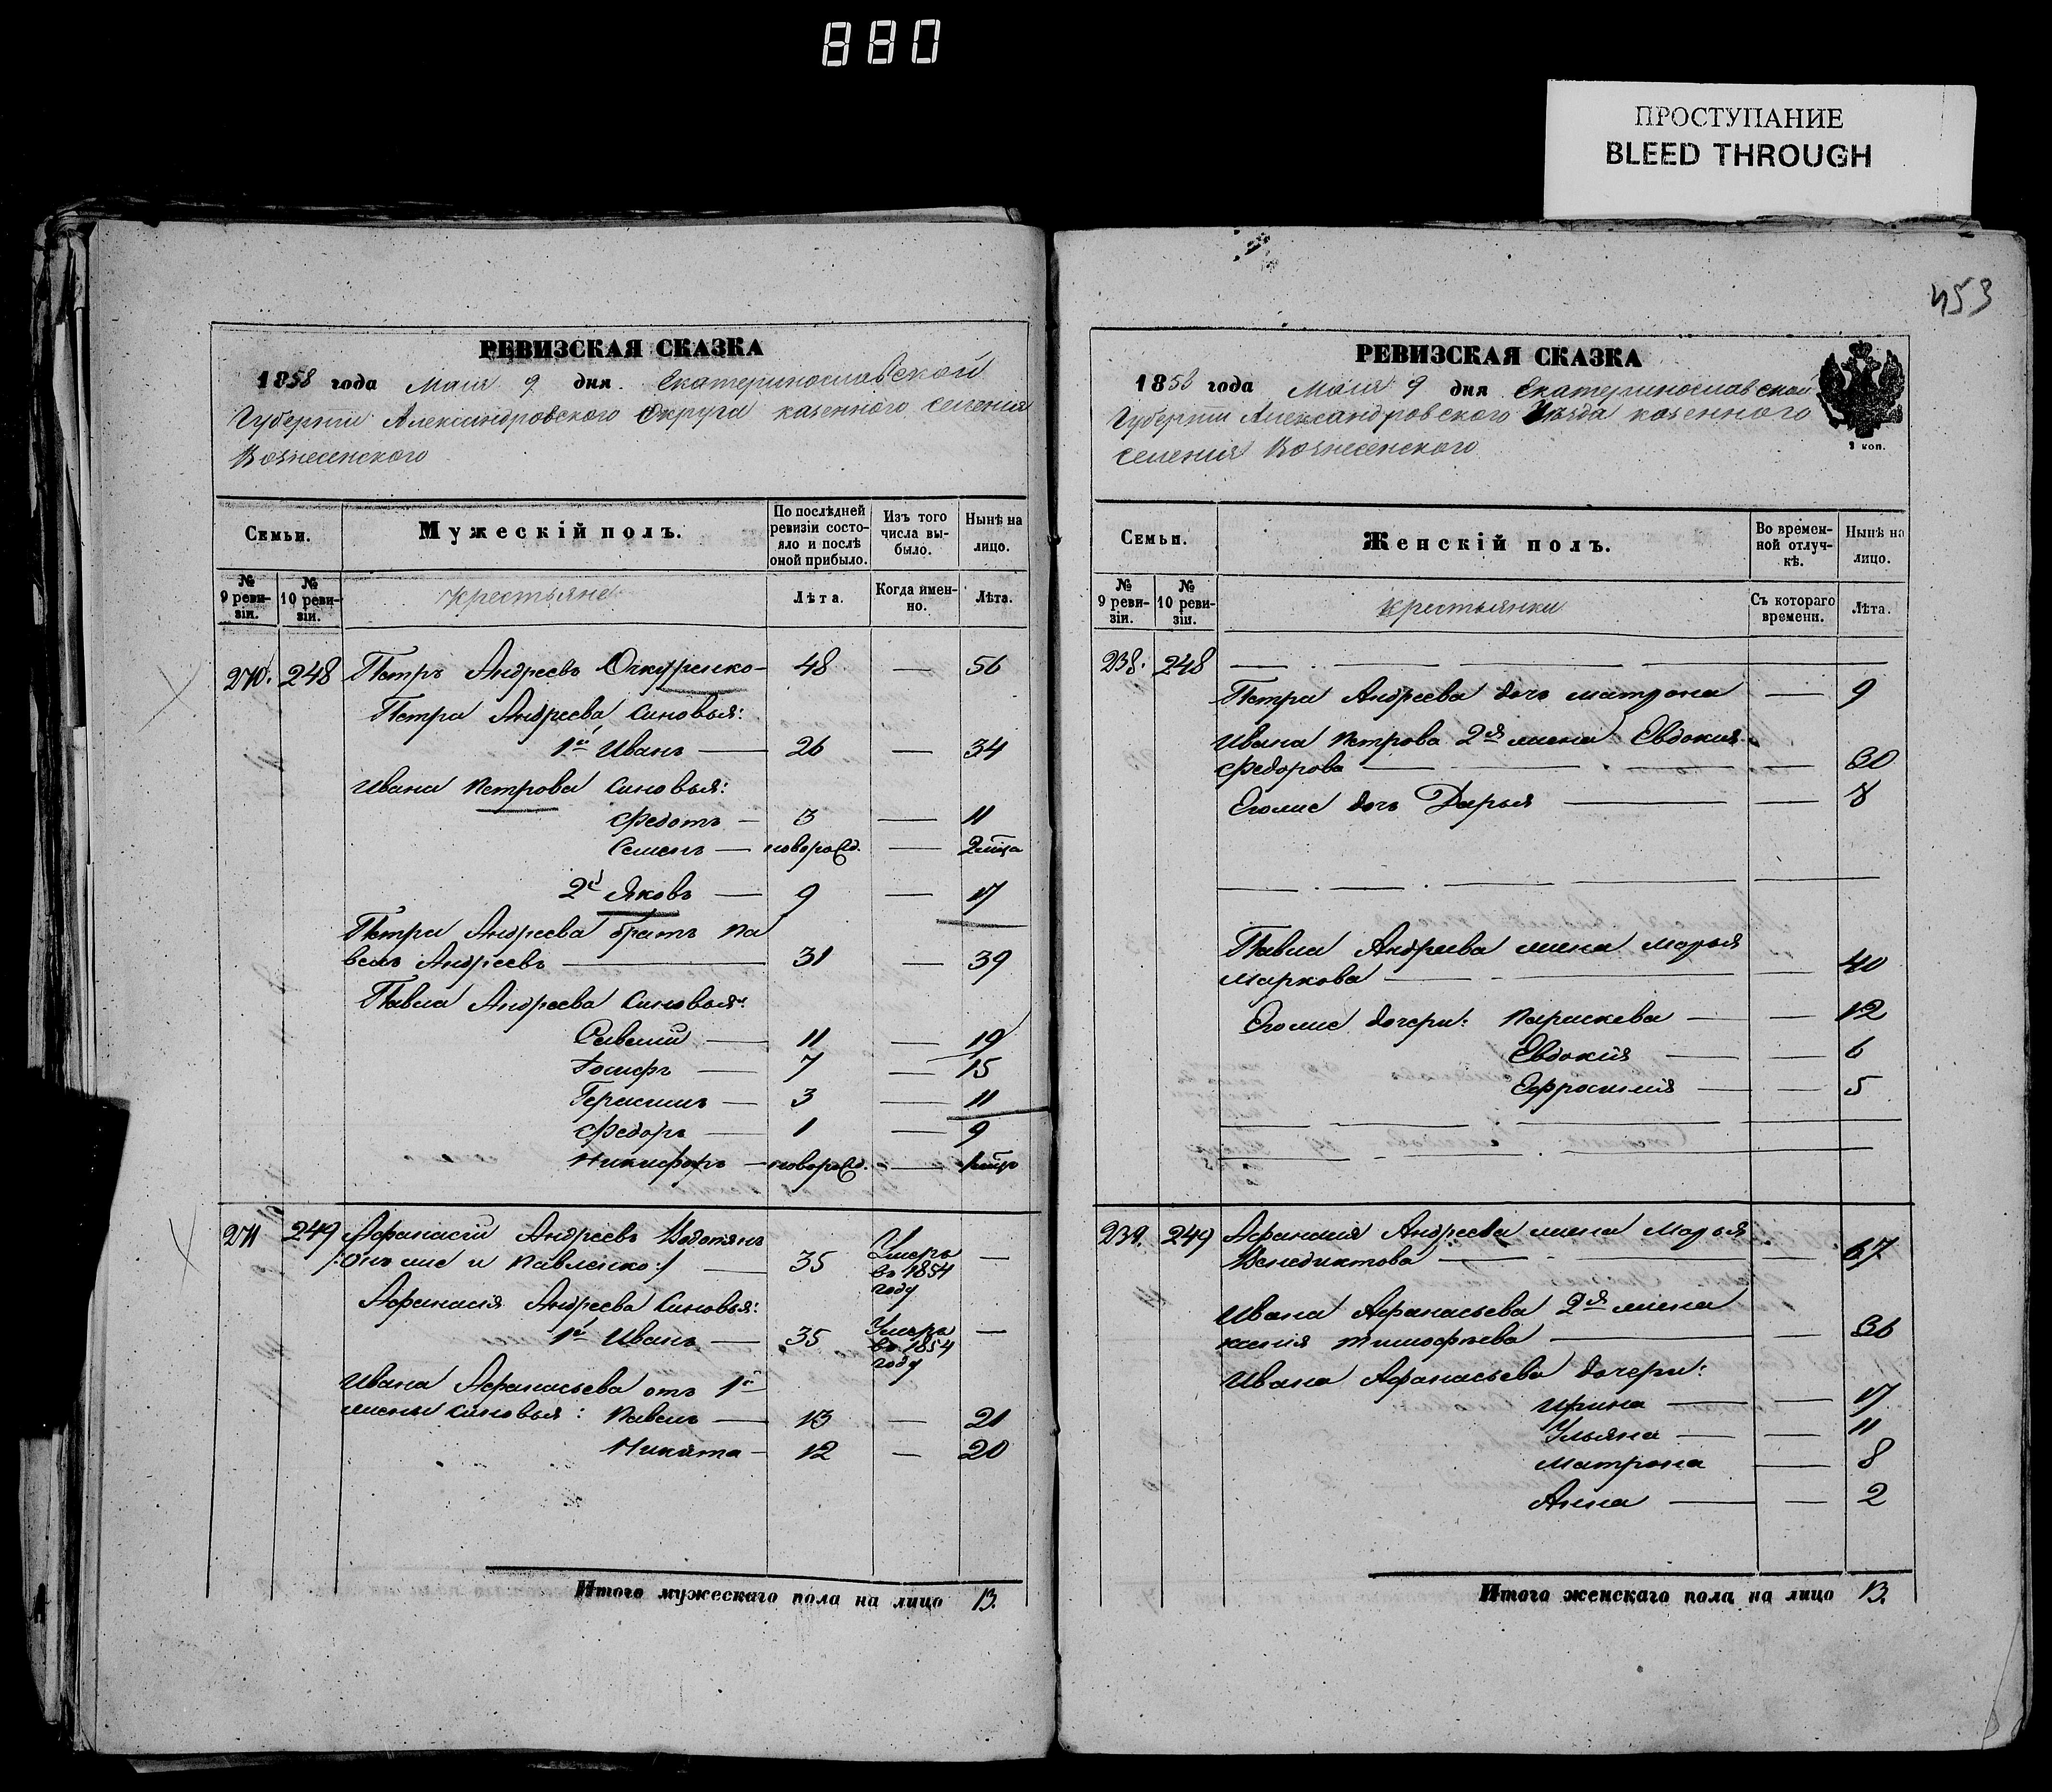 880
ПРОСТУПАНИЕ
BLEED THROUGH
453
РЕВИЗСКАЯ СКАЗКА
1858 года Маія 9 дня Екатеринославской
Губерніи Александровского Округа казенного селенія
Вознесенского
Семьи.
Мужескій полъ.
По послѣдней ревизіи состояло и послѣ оной прибыло.
Изъ того числа выбыло.
Нынѣ на лицо.
№ 9 ревизіи.
№ 10 ревизіи.
Крестьяне
Лѣта.
Когда именно.
Лѣта.
270. 248 Петръ Андреевъ 48 — 56
Петра Андреева сыновья:
1й Иванъ — 26 — 34
Ивана Петрова сыновья:
Федотъ — 3 — 11
Семенъ — новорожд. —
2й Яковъ — 9 — 17
Петра Андреева братъ Па
велъ Андреевъ — 31 — 39
Павла Андреева сыновья:
Савелій — 11 — 19
Іосифъ — 7 — 15
Герасимъ — 3 — 11
Федоръ — 1 — 9
Никифоръ — новорожд. —
271 249 Афанасій Андреевъ
/:онъ же и Павленко:/ — 35 Умеръ въ 1854 году —
Афанасія Андреева сыновья:
1й Иванъ — 35 Умеръ въ 1854 году —
Ивана Афанасьева отъ 1й
жены сыновья: Павелъ — 13 — 21
Никита — 12 — 20
Итого мужескаго пола на лицо 13.
РЕВИЗСКАЯ СКАЗКА
1858 года Маія 9 дня Екатеринославской
Губерніи Александровского Уѣзда казенного
селенія Вознесенского
2 коп.
Семьи.
Женскій полъ.
Во временной отлучкѣ.
Нынѣ на лицо.
№ 9 ревизіи.
№ 10 ревизіи.
Крестьянки
Съ котораго времени.
Лѣта.
238. 248
Петра Андреева дочь Матрона — 9
Ивана Петрова 2я жена Евдокия
Федорова — 30
Егоже дочь Дарья —
Павла Андреева жена Марья
Маркова — 40
Егоже дочери: Параскева — 12
Евдокія — 6
Ефросинія — 5
239. 249 Афанасія Андреева жена Марья
Венедиктова —
Ивана Афанасьева 2я жена
ксенія Тимофѣева — 36
Ивана Афанасьева дочери:
Ирина — 17
Ульяна — 11
Матрона — 8
Анна — 2
Итого женскаго пола на лицо 13.